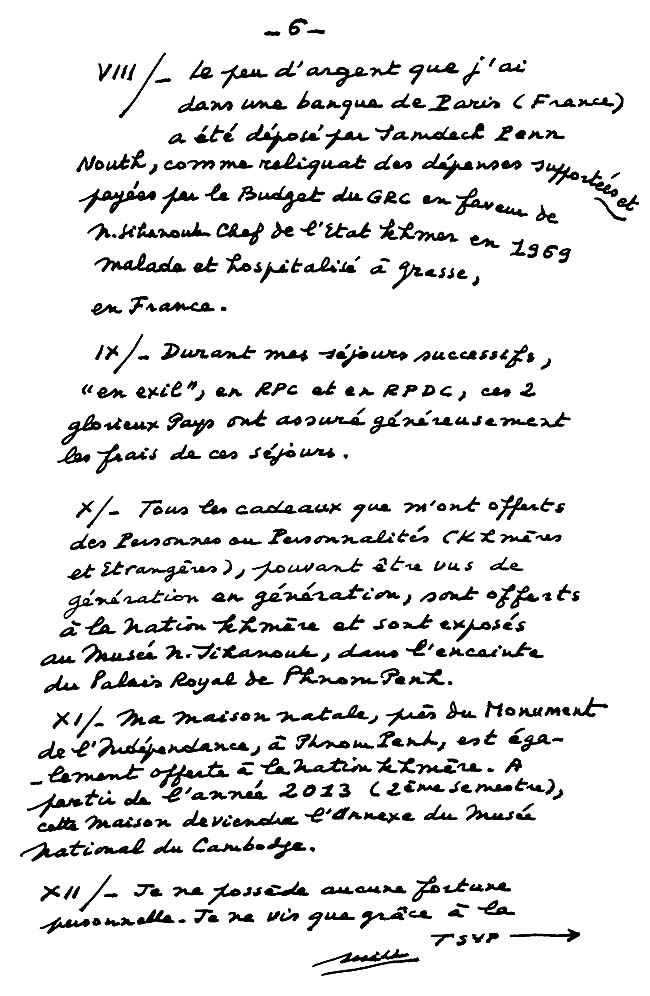 _ 6 _
VIII/_ Le peu d'argent que j'ai
dans une banque de Paris (France)
a été déposé par Samdech Penn
Nouth, comme reliquat des dépenses supportées et
payées par le Budget du GRC en faveur de
N. Sihanouk Chef de l'Etat khmer en 1969
malade et hospitalisé à Grasse,
en France.
IX/_ Durant mes séjours successifs,
"en exil", en RPC et en RPDC, ces 2
glorieux Pays ont assuré généreusement
les frais de ces séjours.
X/_ Tous les cadeaux que m'ont offerts
des Personnes ou Personnalités (Khmères
et Etrangères), pouvant être vus de
génération en génération, sont offerts
à la Nation khmère et sont exposés
au Musée N. Sihanouk, dans l'enceinte
du Palais Royal de Phnom Penh.
XI/_ Ma maison natale, près du Monument
de l'Indépendance, à Phnom Penh, est éga-
-lement offerte à la Nation khmère. A
partir de l'année 2013 (2ème semestre),
cette maison deviendra l'Annexe du Musée
National du Cambodge.
XII/_ Je ne possède aucune fortune
personnelle. Je ne vis que grâce à la
TSVP →